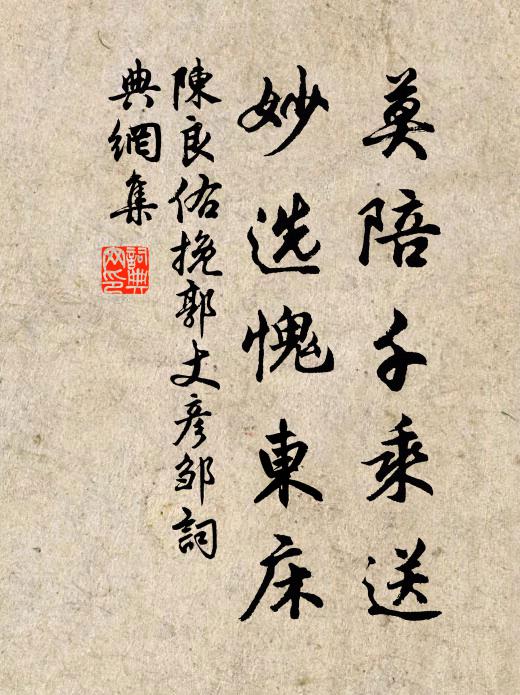 莫陪千乘送
妙选愧東床
陳良佑挽郭丈彥邹詞
典網集
詞典